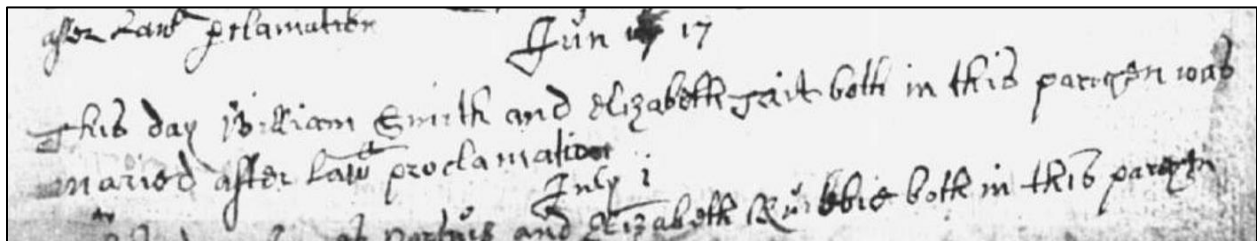 after Lawll proclamation
Jun 17
This day William Smith and Elizabeth both in this parochen was
maried after Lawll proclamation
July 1
and Elizabeth both in this parochn